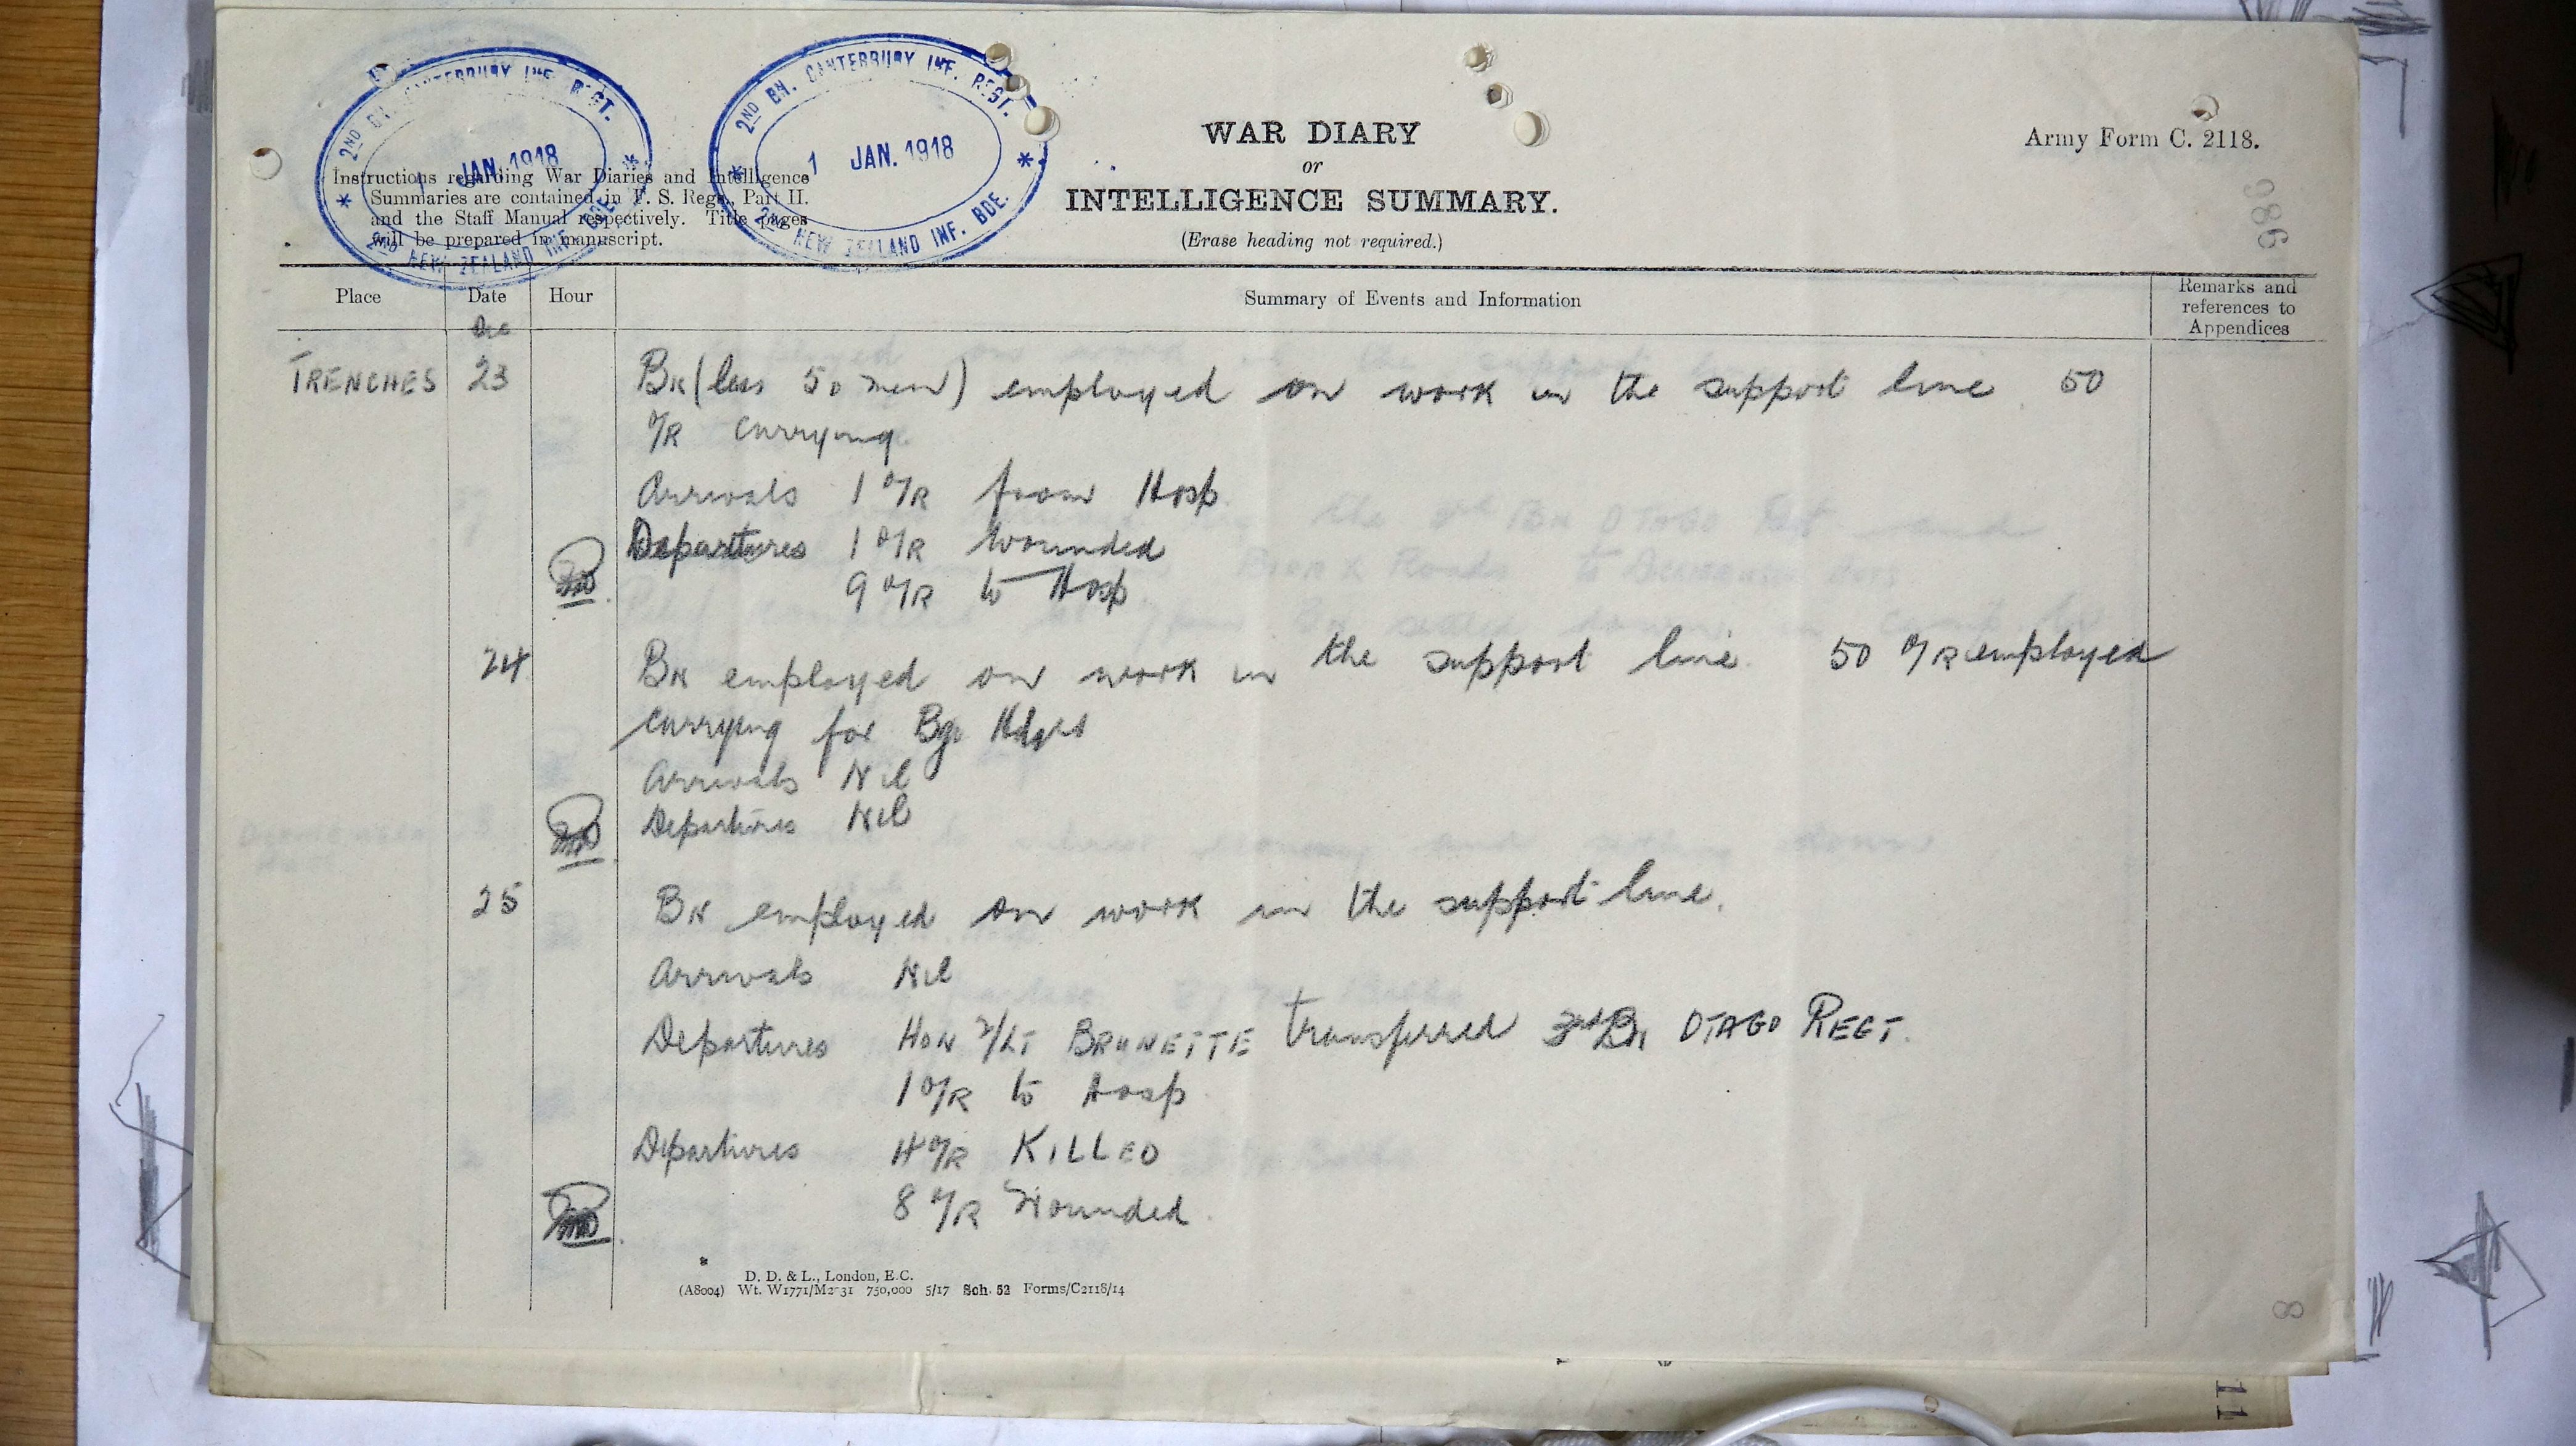 2ND BN. CANTERBURY INF. REGT.
JAN. 1918
2ND NEW ZEALAND INF. BDE.
2ND BN. CANTERBURY INF. REGT.
1 JAN. 1918
2ND NEW ZEALAND INF. BDE.
Instructions regarding War Diaries and Intelligence
Summaries are contained in F. S. Regs., Part II.
and the Staff Manual respectively. Title pages
will be prepared in manuscript.
WAR DIARY
or
INTELLIGENCE SUMMARY.
(Erase heading not required.)
Army Form C. 2118.
986
Place Date Hour Summary of Events and Information Remarks and references to Appendices
Dec
TRENCHES 23 Bn (less 50 men) employed on work in the support line. 50
O/R carrying.
Arrivals 1 O/R from Hosp
Departures 1 O/R Wounded
9 O/R to Hosp
24 Bn employed on work in the support line. 50 O/R employed
carrying for Bge Hdqrs
Arrivals Nil
Departures Nil
25 Bn employed on work in the support line.
Arrivals Nil
Departures Hon 2/Lt BRUNETTE transferred Bn OTAGO REGT.
1 O/R to Hosp
Departures 4 O/R KILLED
8 O/R Wounded.
D. D. & L., London, E.C.
(A8004) Wt. W1771/M2931 750,000 5/17 Sch. 52 Forms/C2118/14
8
11